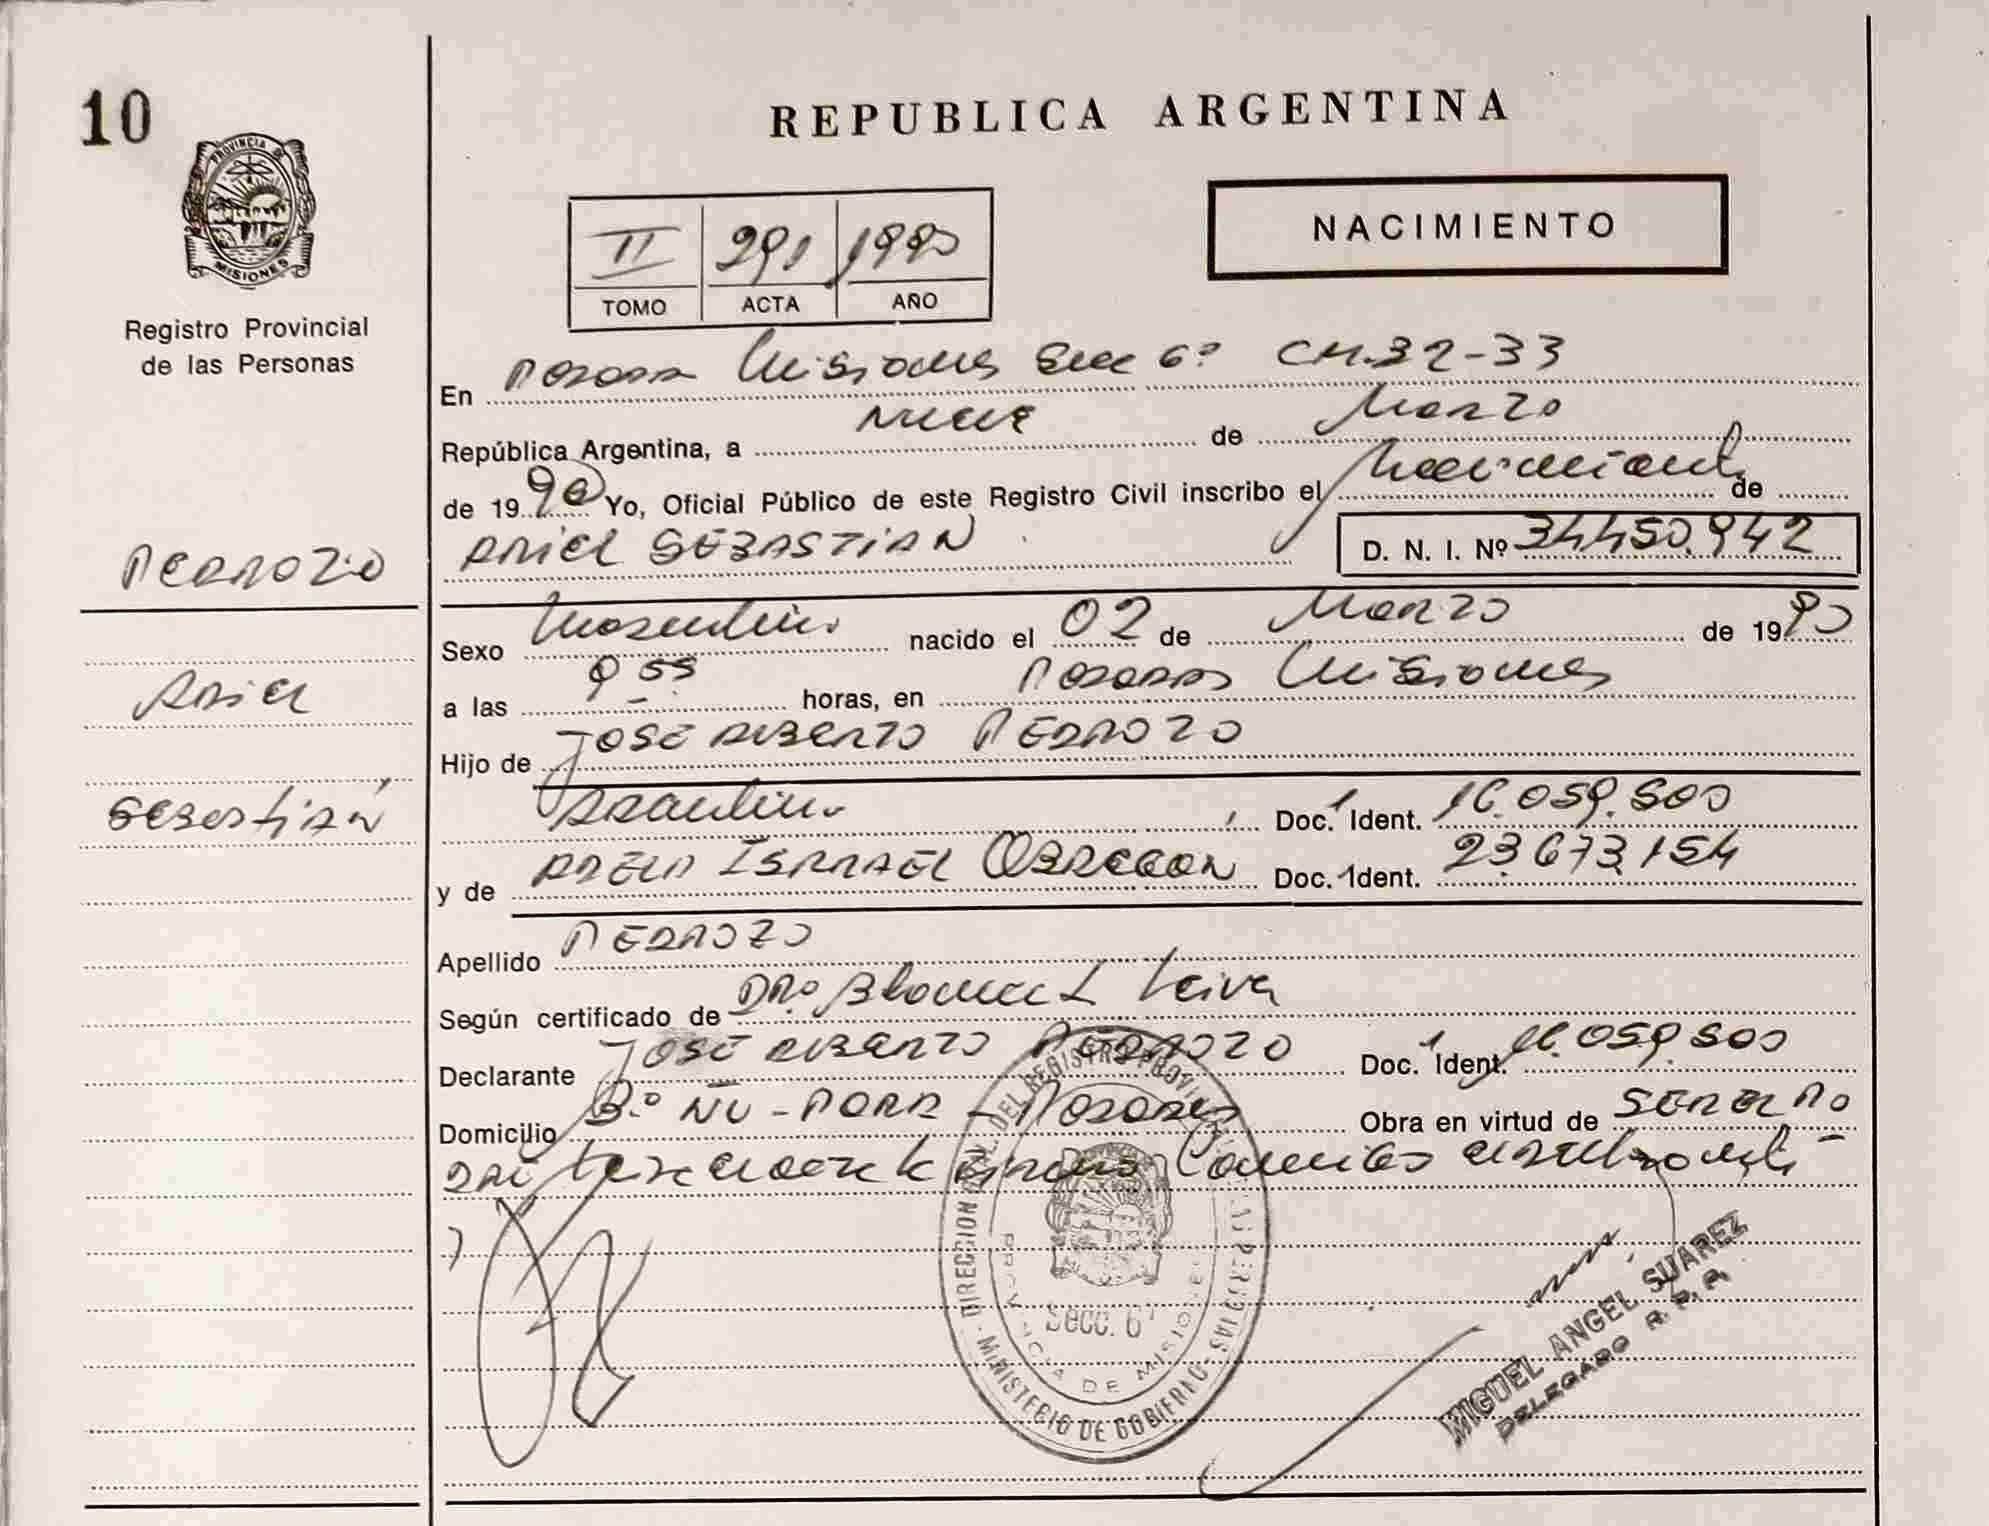 10
REPUBLICA ARGENTINA
PROVINCIA DE
MISIONES
Registro Provincial
de las Personas
NACIMIENTO
II 291 1990
TOMO ACTA AÑO
En Posadas Misiones Secc 6º CM.32-33
República Argentina, a nueve de Marzo
de 1990 Yo, Oficial Público de este Registro Civil inscribo el Nacimiento de
ARIEL SEBASTIAN
D. N. I. Nº 34.450.942
PEDROZO
Ariel
Sebastián
Sexo Masculino nacido el 02 de Marzo de 1990
a las 9 55 horas, en Posadas Misiones
Hijo de JOSÉ ALBERTO PEDROZO
Argentino Doc. Ident. 16.059.500
y de ISRRAEL OBREGON Doc. Ident. 23.673.154
Apellido PEDROZO
Según certificado de Dra Blanca L Leiva
Declarante JOSÉ ALBERTO PEDROZO Doc. Ident. 16.059.500
Domicilio Bº ÑU-PORA - Posadas Obra en virtud de SER EL PA
DRE
DIRECCION GRAL. DEL REGISTRO PROVINCIAL DE LAS PERSONAS
MINISTERIO DE GOBIERNO
PROVINCIA DE MISIONES
Secc. 6ª
MIGUEL ANGEL SUAREZ
DELEGADO R. P. P.